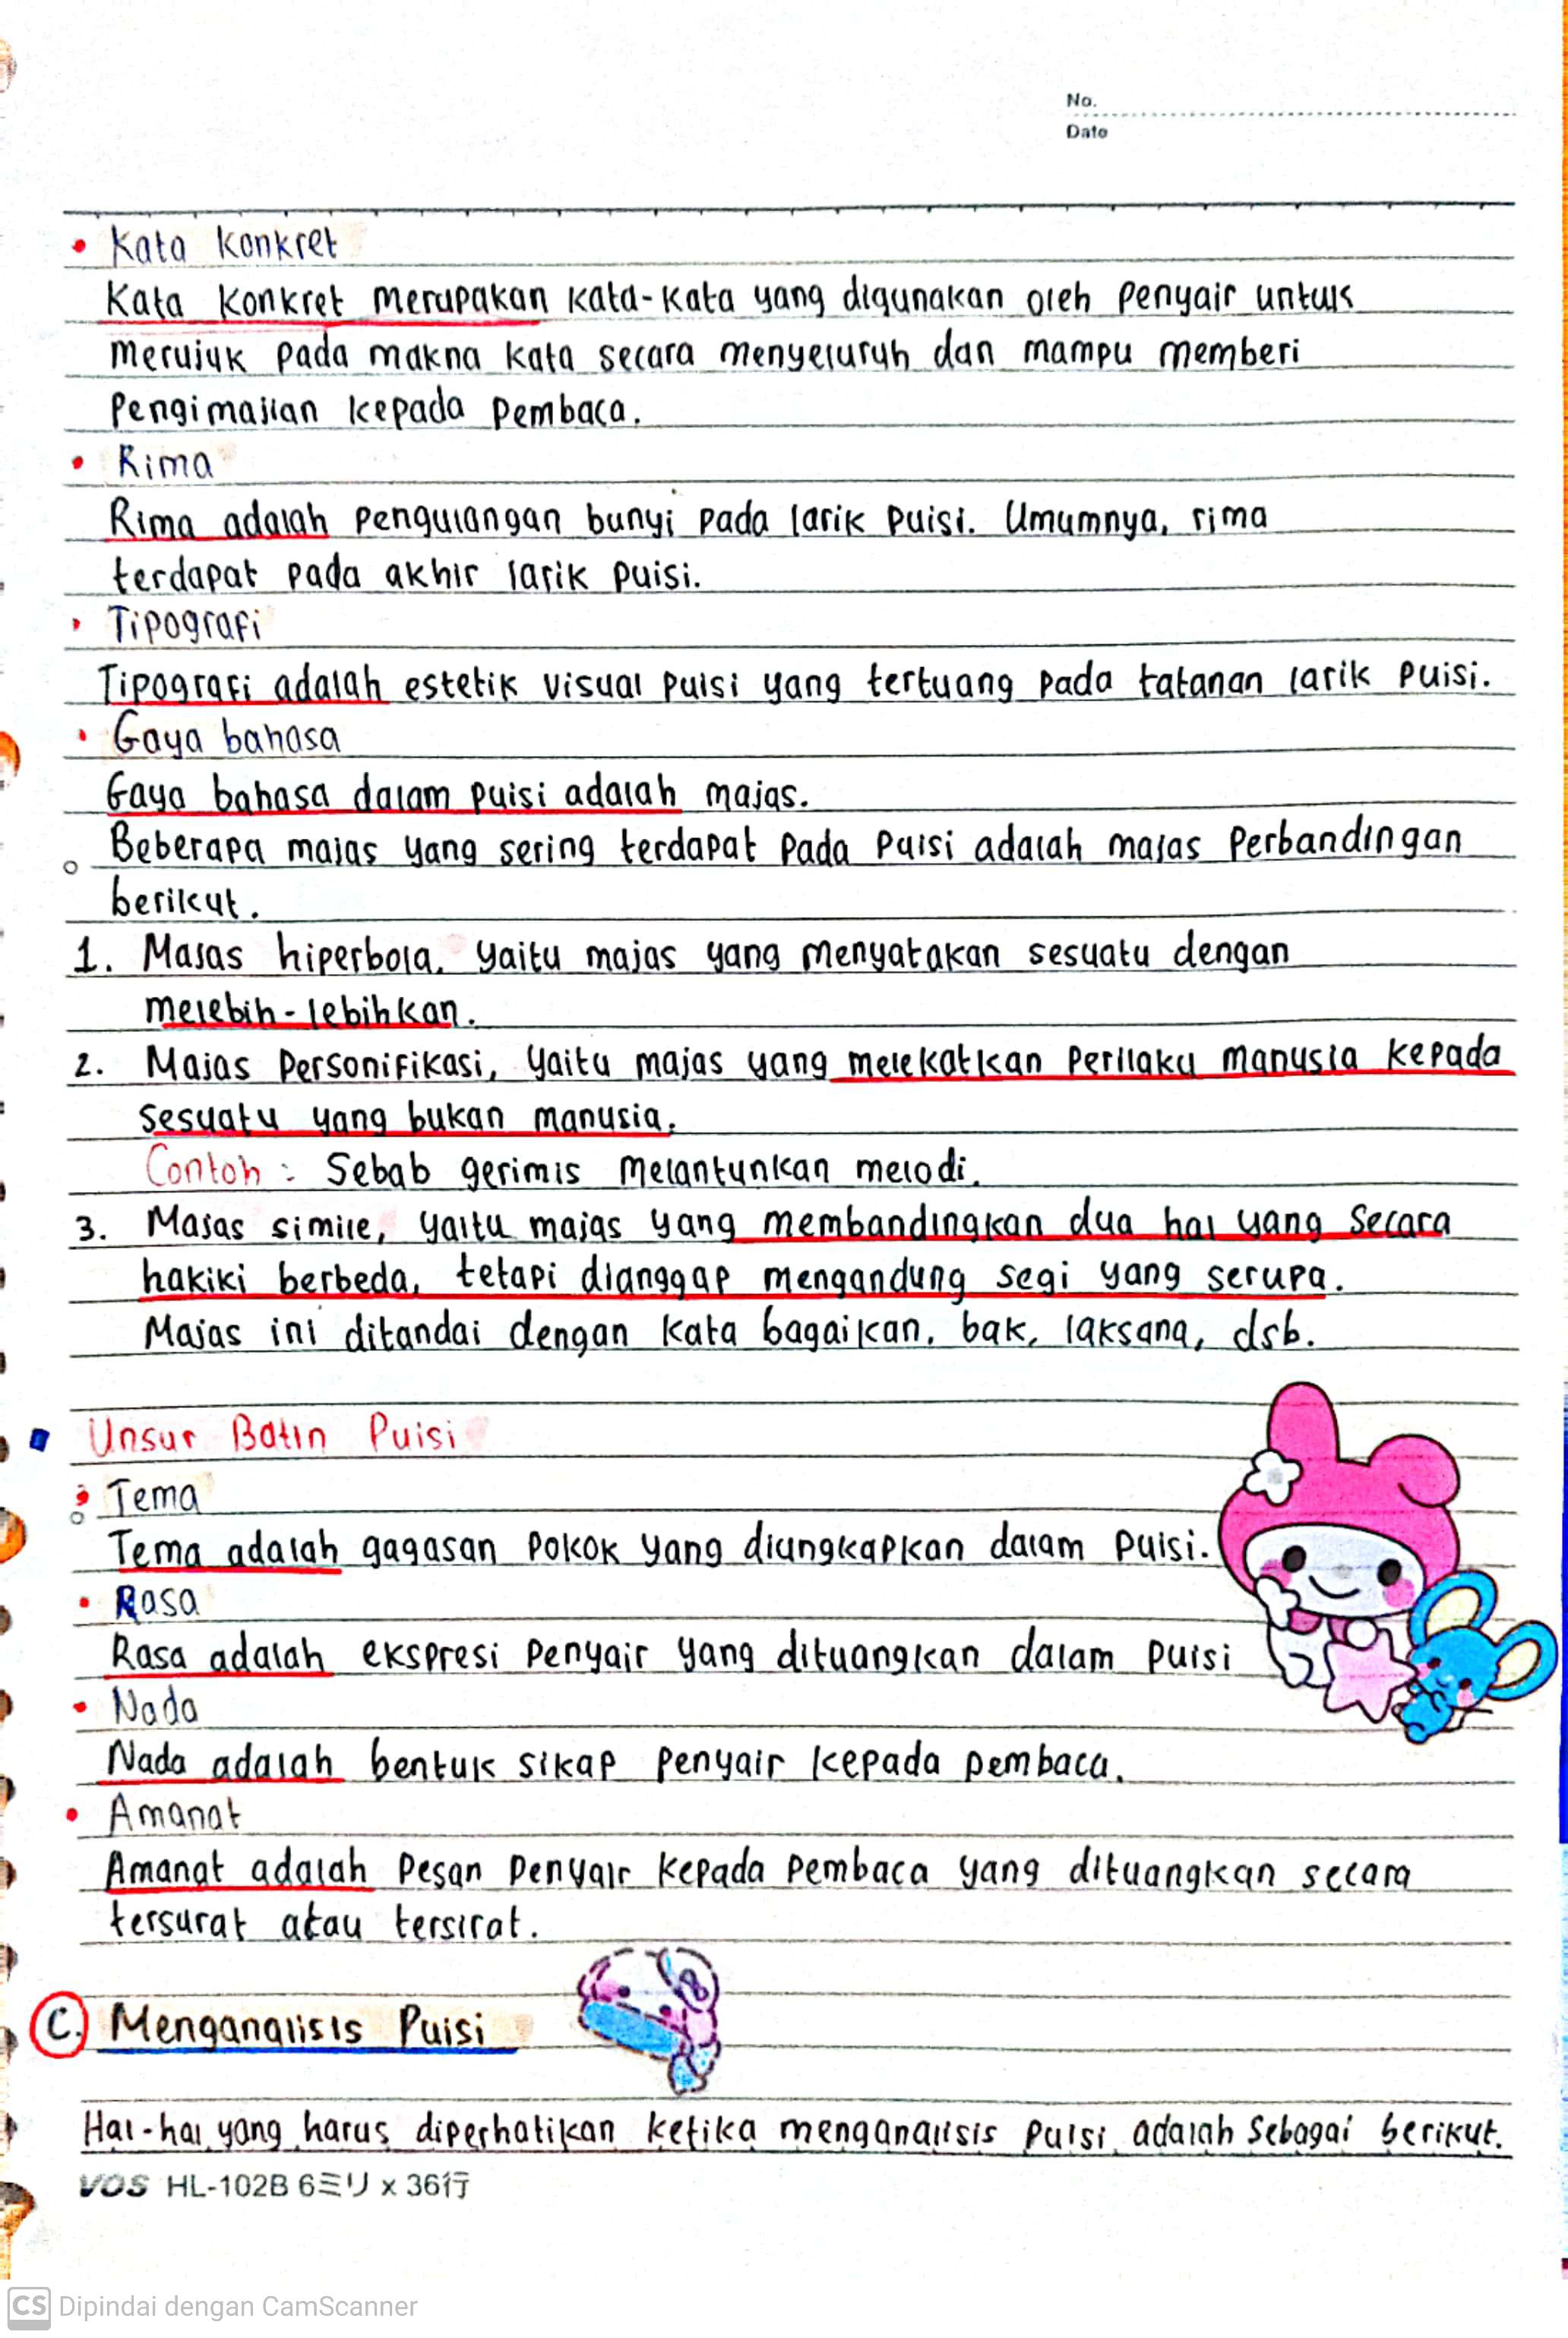 No.
Date
• Kata Konkret
Kata Konkret merupakan kata-kata yang digunakan oleh penyair untuk
merujuk pada makna kata secara menyeluruh dan mampu memberi
Pengimajian kepada pembaca.
• Rima
Rima adalah pengulangan bunyi pada larik puisi. Umumnya, rima
terdapat pada akhir larik puisi.
• Tipografi
Tipografi adalah estetik visual puisi yang tertuang pada tatanan larik puisi.
• Gaya bahasa
Gaya bahasa dalam puisi adalah majas.
Beberapa majas yang sering terdapat pada puisi adalah majas perbandingan
berikut.
1. Majas hiperbola, yaitu majas yang menyatakan sesuatu dengan
melebih-lebihkan.
2. Majas personifikasi, yaitu majas yang melekatkan perilaku manusia kepada
sesuatu yang bukan manusia.
Contoh : Sebab gerimis melantunkan melodi.
3. Majas simile, yaitu majas yang membandingkan dua hal yang secara
hakiki berbeda, tetapi dianggap mengandung segi yang serupa.
Majas ini ditandai dengan kata bagaikan, bak, laksana, dsb.
Unsur Batin Puisi
• Tema
Tema adalah gagasan pokok yang diungkapkan dalam puisi.
• Rasa
Rasa adalah ekspresi penyair yang dituangkan dalam puisi
• Nada
Nada adalah bentuk sikap penyair kepada pembaca.
• Amanat
Amanat adalah pesan penyair kepada pembaca yang dituangkan secara
tersurat atau tersirat.
C. Menganalisis Puisi
Hal-hal yang harus diperhatikan ketika menganalisis puisi adalah sebagai berikut.
VOS HL-102B 6ミリ x 36行
CS Dipindai dengan CamScanner